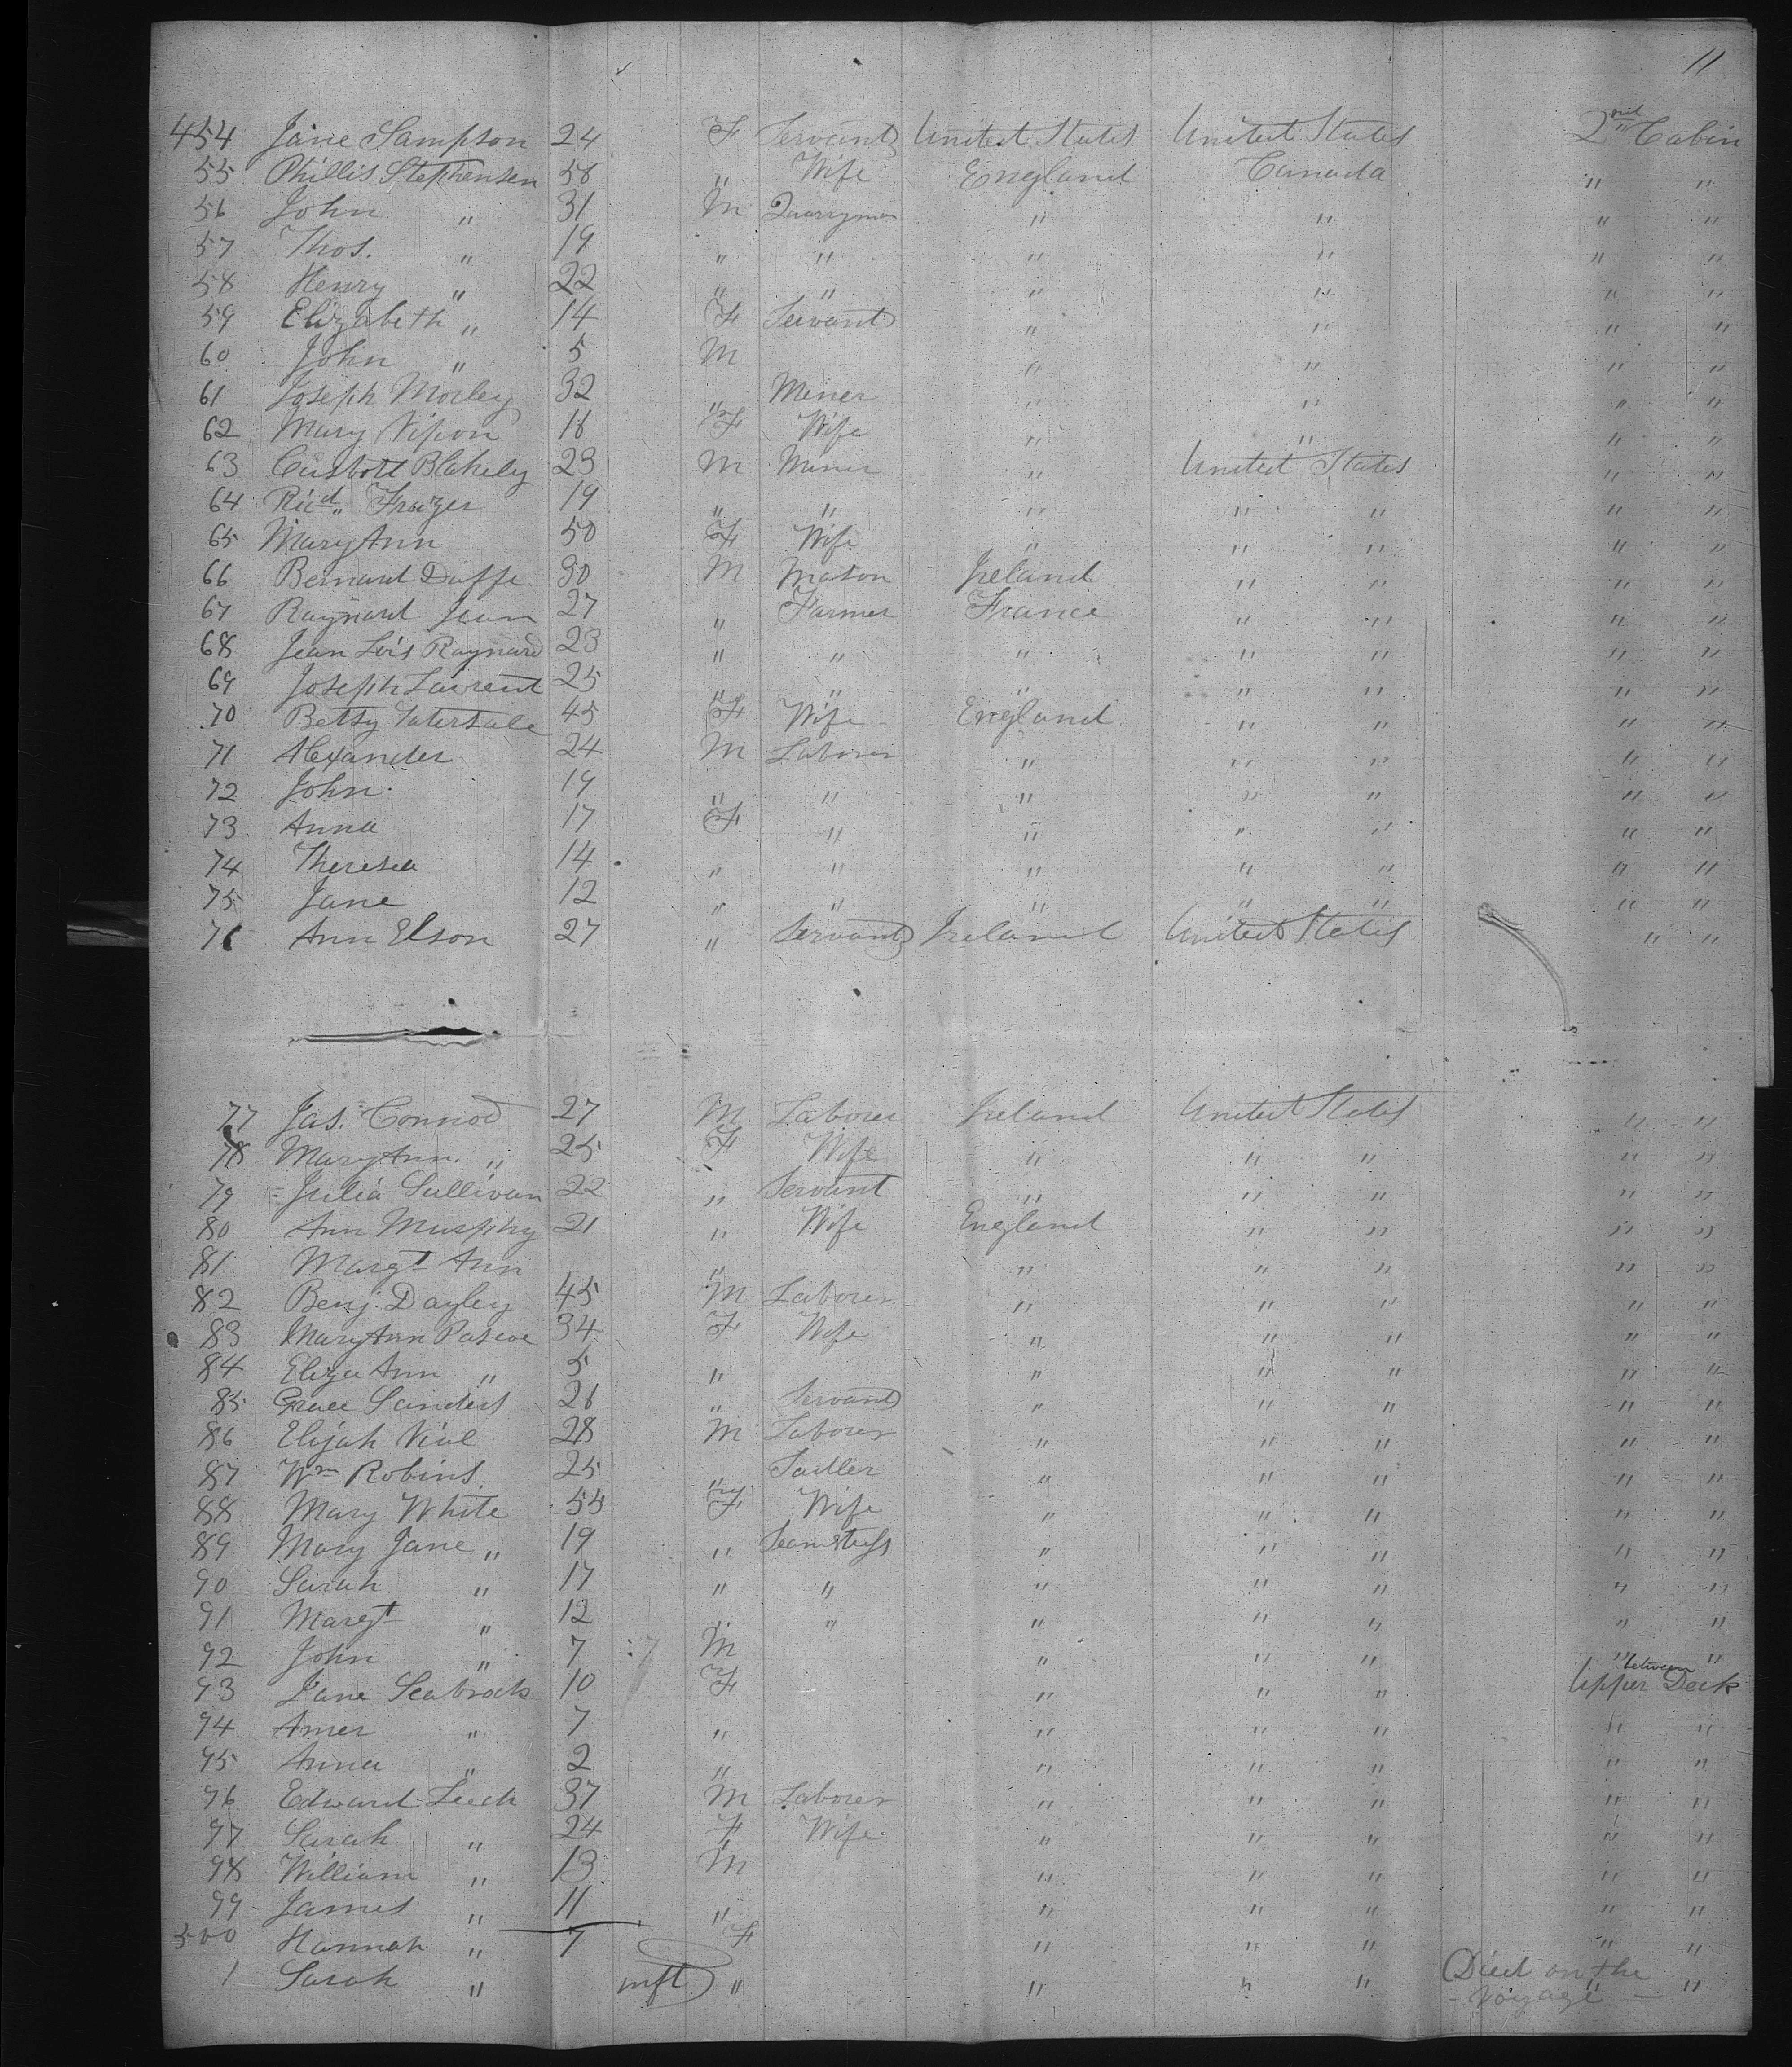 11
454 Jane Sampson 24 F Servant United States United States 2nd Cabin
55 Phillis Stephensen 58 " Wife England Canada " "
56 John " 31 M Quarryman " " " "
57 Thos. " 19 " " " " " "
58 Henry " 22 " " " " " "
59 Elizabeth " 14 F Servant " " " "
60 John " 5 M " " " "
61 Joseph Morley 32 " Miner " " " "
62 Mary Vipon 18 F Wife " " " "
63 Blakely 23 M Miner " United States " "
64 Ricd. Frazer 19 " " " " " " "
65 Mary Ann 50 F Wife " " " " "
66 Bernard Duffe 30 M Mason Ireland " " " "
67 Raynard Jean 27 " Farmer France " " " "
68 Jean Lois Raynard 23 " " " " " " "
69 Joseph Laurent 25 " " " " " " "
70 Betsy Tatersale 45 F Wife England " " " "
71 Alexander 24 M Laborer " " " " "
72 John 19 " " " " " " "
73 Anna 17 F " " " " " "
74 Theresa 14 " " " " " " "
75 Jane 12 " " " " " " "
76 Ann Elson 27 " Servant Ireland United States " "
77 Jas. Connod 27 M Laborer Ireland United States " "
78 Mary Ann " 25 F Wife " " " " "
79 Julia Sullivan 22 " Servant " " " " "
80 Ann Murphy 21 " Wife England " " " "
81 Margt Ann " " " " " "
82 Benj. Dayley 45 M Laborer " " " " "
83 Mary Ann Pascoe 34 F Wife " " " " "
84 Eliza Ann " 5 " " " " " "
85 Grace Sanders 26 " Servant " " " " "
86 Elijah Vial 28 M Laborer " " " " "
87 Wm Robins 25 " Sadler " " " " "
88 Mary White 55 F Wife " " " " "
89 Mary Jane " 19 " Seamstress " " " " "
90 Sarah " 17 " " " " " " "
91 Margt " 12 " " " " " " "
92 John " 7 7 M " " " " "
93 Jane Seabrook 10 F " " " Upper between Deck
94 Amer " 7 " " " " " "
95 Anna " 2 " " " " " "
96 Edward Leech 37 M Laborer " " " " "
97 Sarah " 24 F Wife " " " " "
98 William " 13 M " " " " "
99 James " 11 " " " " " "
500 Hannah " 7 F " " " " "
1 Sarah " inft " " " " Died on the
voyage " "